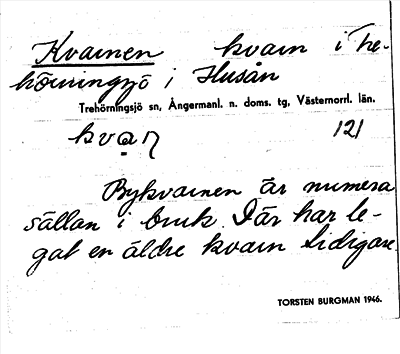 Kvarnen kvarn i Tre-
hörningsjö i Husån
Trehörningsjö sn, Ångermanl. n. doms. tg, Västernorrl. län.
kvaꞃ 121
Bykvarnen är numera
sällan i bruk. Där har le-
gat en äldre kvarn tidigare.
TORSTEN BURGMAN 1946.